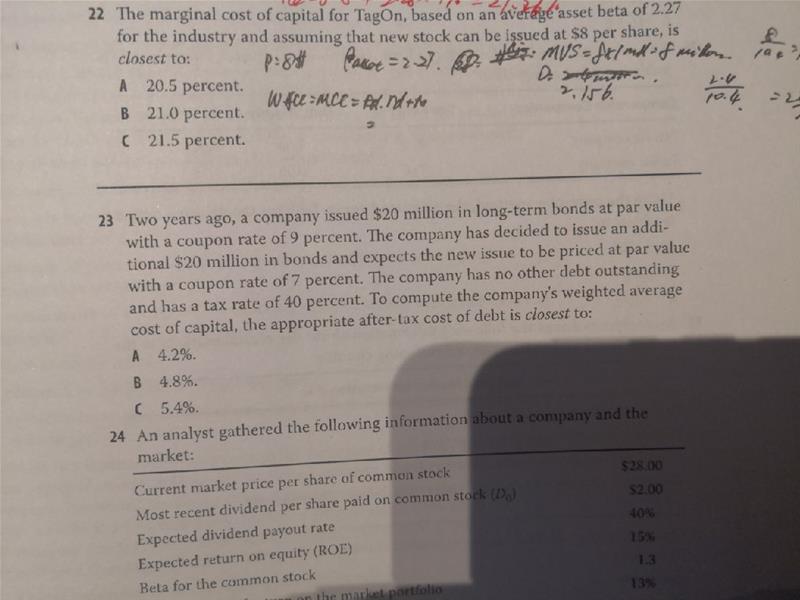 22 The marginal cost of capital for TagOn, based on an average asset beta of 2.27
for the industry and assuming that new stock can be issued at $8 per share, is
closest to:
P=8$
A 20.5 percent.
2.156.
2.4
10.4
B 21.0 percent.
WACC=MCC=
C 21.5 percent.
23 Two years ago, a company issued $20 million in long-term bonds at par value
with a coupon rate of 9 percent. The company has decided to issue an addi-
tional $20 million in bonds and expects the new issue to be priced at par value
with a coupon rate of 7 percent. The company has no other debt outstanding
and has a tax rate of 40 percent. To compute the company's weighted average
cost of capital, the appropriate after-tax cost of debt is closest to:
A 4.2%.
B 4.8%.
C 5.4%.
24 An analyst gathered the following information about a company and the
market:
Current market price per share of common stock $28.00
Most recent dividend per share paid on common stock (D0) $2.00
Expected dividend payout rate 40%
Expected return on equity (ROE) 15%
Beta for the common stock 1.3
on the market portfolio 13%